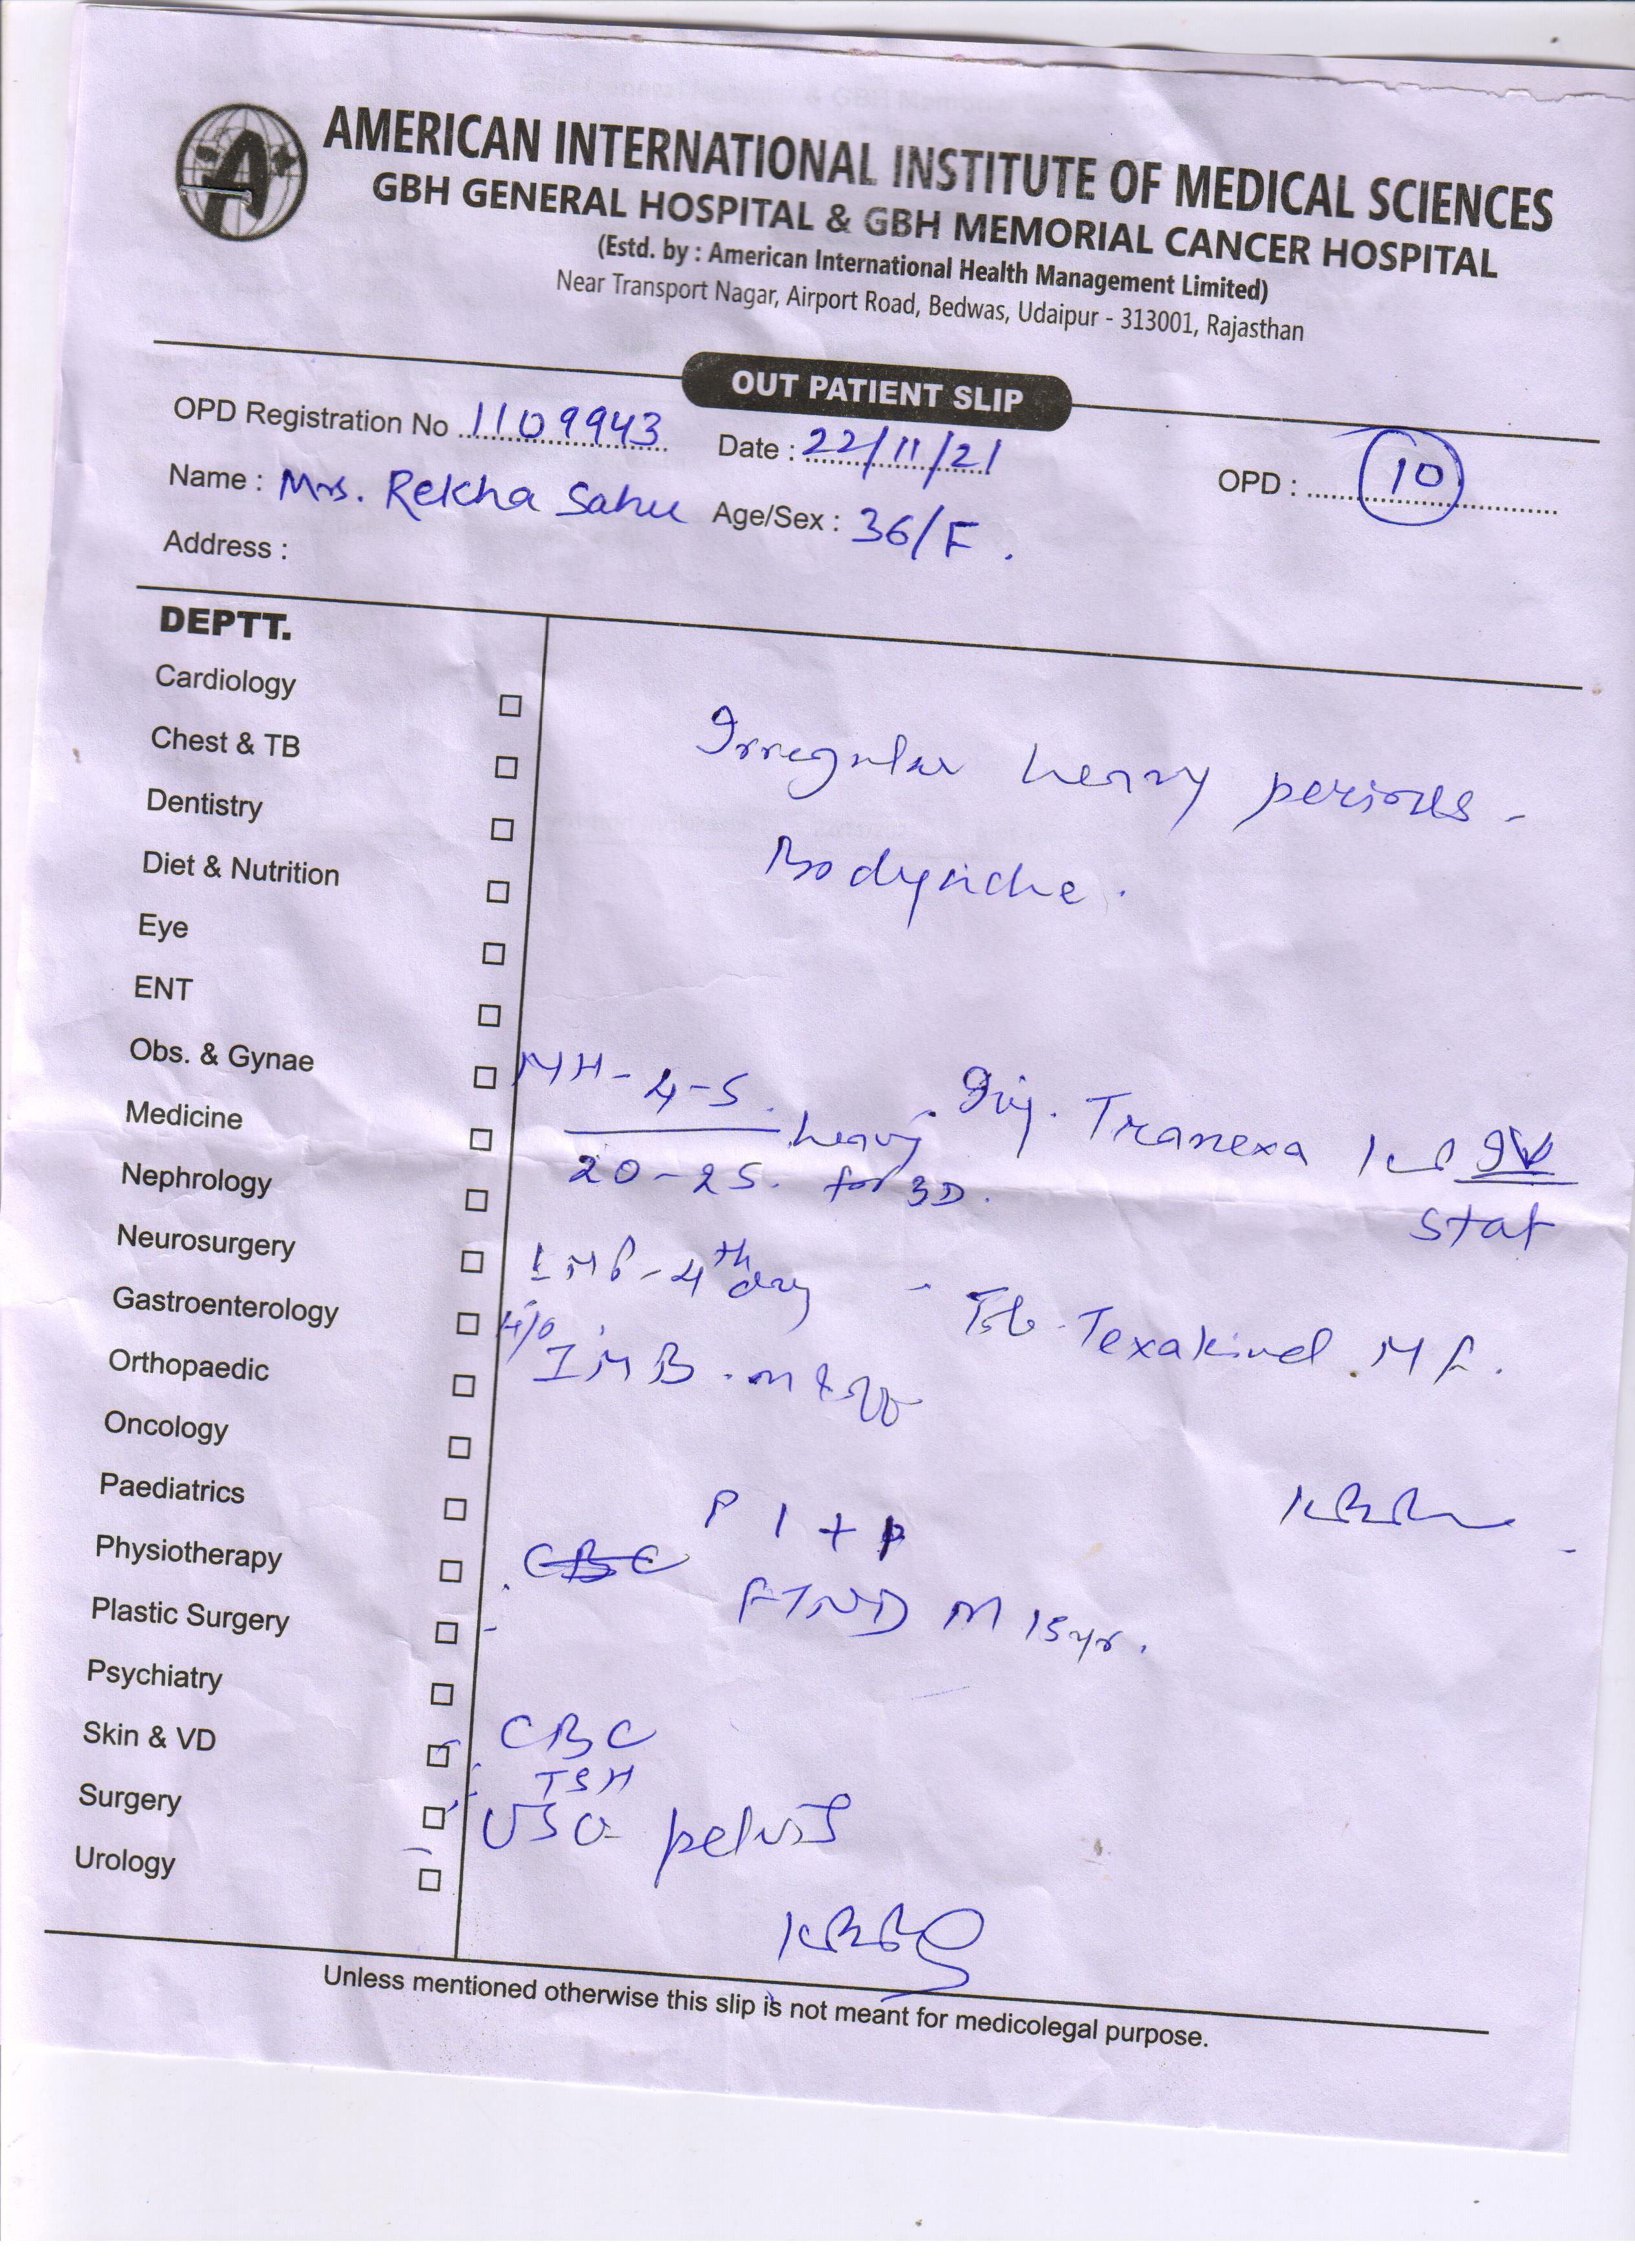 AMERICAN INTERNATIONAL INSTITUTE OF MEDICAL SCIENCES
GBH GENERAL HOSPITAL & GBH MEMORIAL CANCER HOSPITAL
(Estd. by : American International Health Management Limited)
Near Transport Nagar, Airport Road, Bedwas, Udaipur - 313001, Rajasthan
OUT PATIENT SLIP
OPD Registration No 1109943 Date : 22/11/21 OPD : 10
Name : Mrs. Rekha Sahu Age/Sex : 36/F.
Address :
DEPTT.
Cardiology
Chest & TB
Dentistry
Diet & Nutrition
Eye
ENT
Obs. & Gynae
Medicine
Nephrology
Neurosurgery
Gastroenterology
Orthopaedic
Oncology
Paediatrics
Physiotherapy
Plastic Surgery
Psychiatry
Skin & VD
Surgery
Urology
Irregular heavy periods -
Bodyache.
MH - 4-5. heavy
20-25. for 3D.
LMP - 4th day
H/o IMB. on & off
Inj. Tranexa IV
Stat
- Tab. Texakind MF.
P1+
CBC
FTND M 15yr.
CBC
TSH
USG pelvis
Unless mentioned otherwise this slip is not meant for medicolegal purpose.